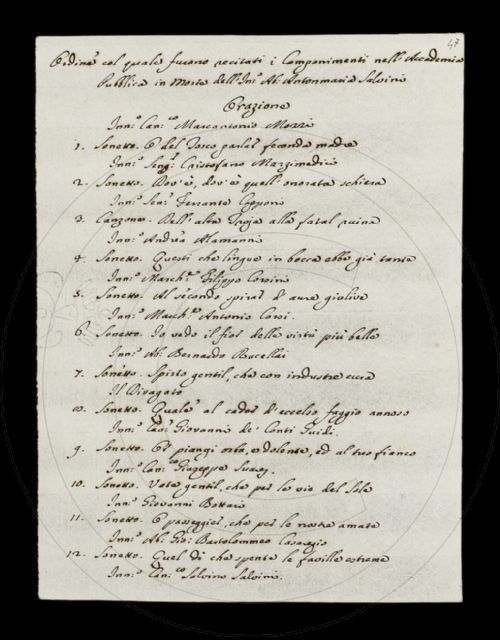 47
Ordine col quale furono recitati i Componimenti nell'Accademia
Pubblica in Morte dell'Inn.º Ab: Antonmaria Salvini
Orazione
Inn.º Can.co Marcantonio Mozzi
1. Sonetto. O del Tosco parlar feconda madre
Inn.º Sen.r Cristofano Marzimedici
2. Sonetto. Dov'è, dov'è quell'onorata schiera
Inn.º Sen.r Ferrante Capponi
3. Canzone. Dell'alta Troja alla fatal ruina
Inn.º Andrea Alamanni
4. Sonetto. Questi che lingue in bocca ebbe già tante
Inn.º March.se Filippo Corsini
5. Sonetto. Al secondo spirar d'aura giuliva
Inn.º March.se Antonio Corsi.
6. Sonetto. Io vedo il fior delle virtù più belle
Inn.º Ab: Bernardo Rucellai
7. Sonetto. Spirto gentil, che con industre cura
Il Divagato
8. Sonetto. Quale al cader d'eccelso faggio annoso
Inn.º Cav. Giovanni de' Conti Guidi.
9. Sonetto. piangi orba, e dolente, ed al tuo fianco
Inn.º Can.co Giuseppe Suarez.
10. Sonetto. Vate gentil, che per la via del Sole
Inn.º Giovanni Bottari
11. Sonetto. O passeggier, che per le nostre amate
Inn.º Ab: Gio: Bartolommeo Casaregio
12. Sonetto. Quel dì che spente le faville estreme
Inn.º Can.co Salvino Salvini.